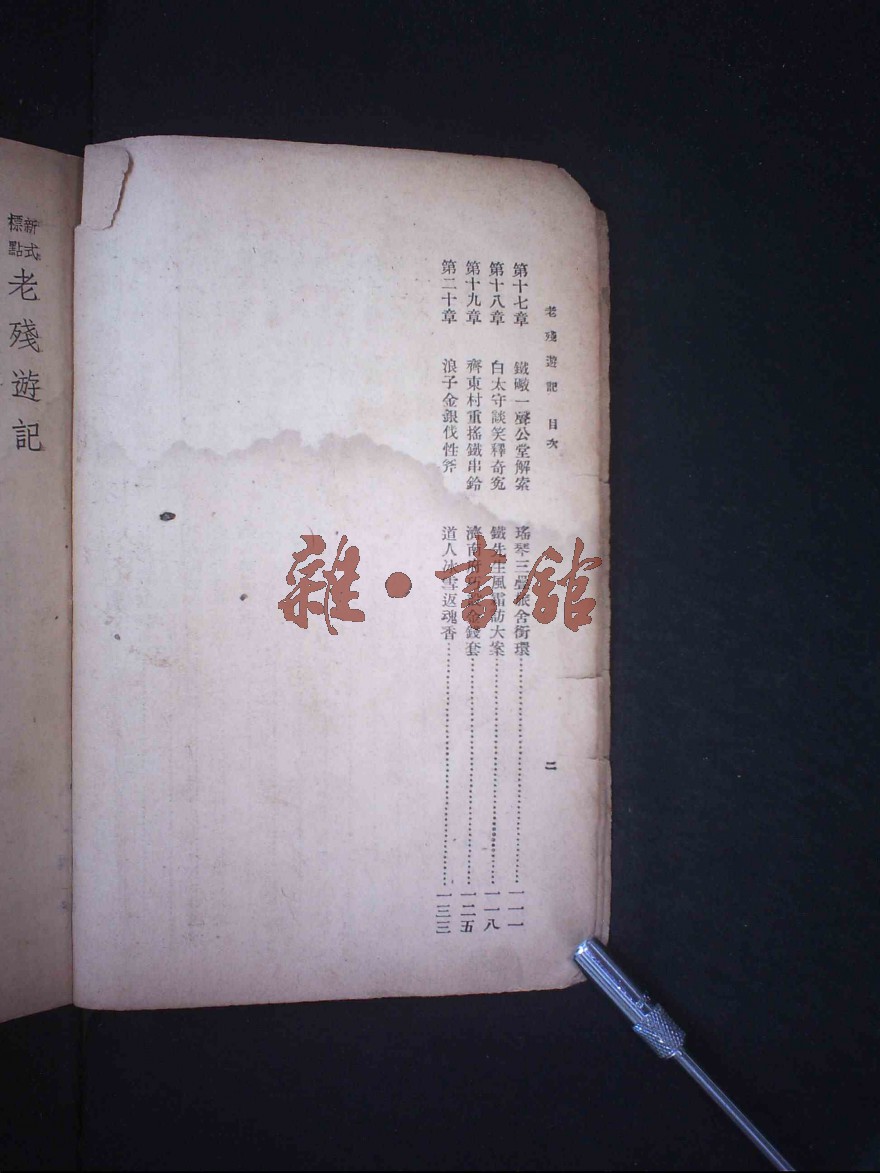 老殘遊記 目次 二
第十七章 鐵礮一聲公堂解索 瑤琴三疊旅舍銜環……一一一
第十八章 白太守談笑釋奇寃 鐵先生風霜訪大案……一一八
第十九章 齊東村重搖鐵串鈴 濟南府巧設金錢套……一二五
第二十章 浪子金銀伐性斧 道人冰雪返魂香……一三三
新式標點
老殘遊記
雜·書館